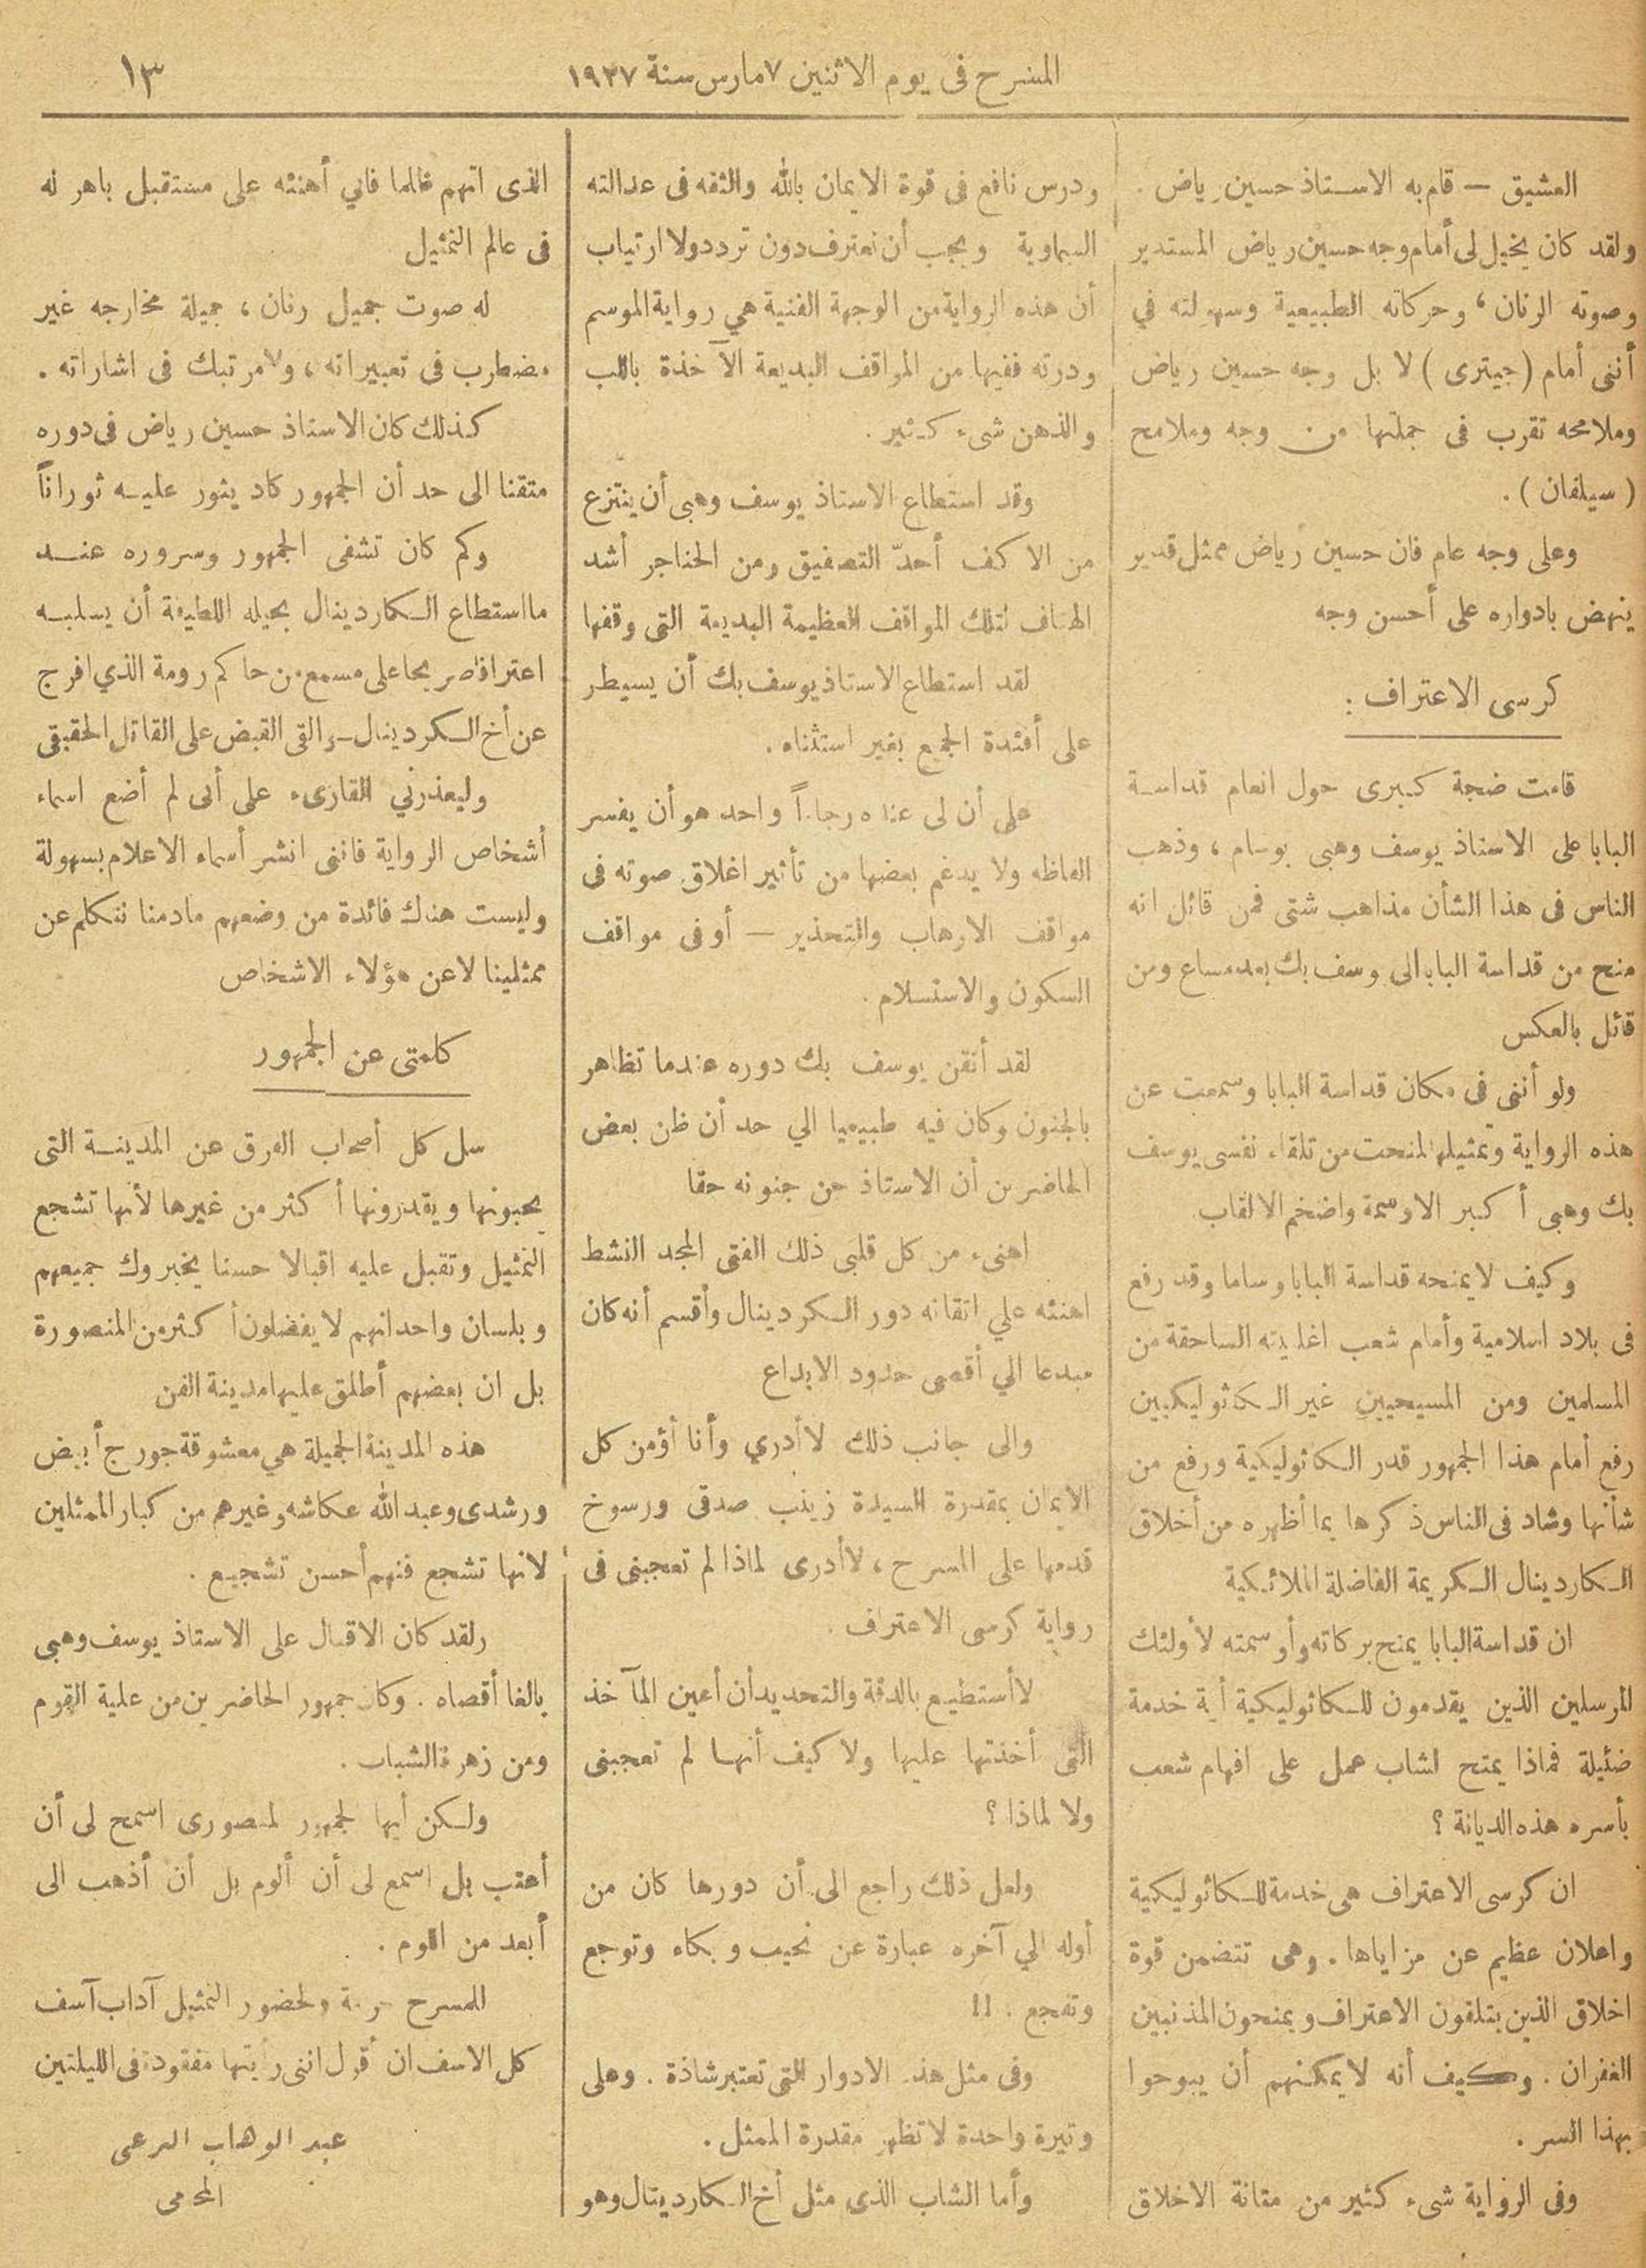 المسرح فى يوم الاثنين ٧ مارس سنة ١٩٢٧
١٣
العشيق — قام به الاستاذ حسين رياض .
ولقد كان يخيل لى أمام وجه حسين رياض المستدير
وصوته الرنان ، وحركاته الطبيعية وسهولته في
أننى أمام ( جيترى ) لا بل وجه حسين رياض
وملامحه تقرب فى جملتها من وجه وملامح
( سيلفان ) .
وعلى وجه عام فان حسين رياض ممثل قدير
ينهض بادواره على أحسن وجه
كرسى الاعتراف :
قامت ضجة كبرى حول انعام قداسة
البابا على الاستاذ يوسف وهبى بوسام ، وذهب
الناس فى هذا الشأن مذاهب شتى فمن قائل انه
منح من قداسة البابا الى وسف بك بعد مساع ومن
قائل بالعكس
ولو أننى فى مكان قداسة البابا وسمعت عن
هذه الرواية وتمثيلها لمنحت من تلقاء نفسى يوسف
بك وهبى أكبر الاوسمة واضخم الالقاب
وكيف لا يمنحه قداسة البابا وساما وقد رفع
فى بلاد اسلامية وأمام شعب اغلبيته الساحقة من
المسلمين ومن المسيحيين غير الكاثوليكيين
رفع أمام هذا الجمهور قدر الكاثوليكية ورفع من
شأنها وشاد فى الناس ذكرها بما أظهره من أخلاق
الكاردينال الكريمة الفاضلة الملائكية
ان قداسة البابا يمنح بركاته وأوسمته لأولئك
المرسلين الذين يقدمون للكاثوليكية أية خدمة
ضئيلة فماذا يمنح لشاب عمل على افهام شعب
بأسره هذه الديانة ؟
ان كرسى الاعتراف هى خدمة للكاثوليكية
واعلان عظيم عن مزاياها . وهى تتضمن قوة
اخلاق الذين يتلقون الاعتراف ويمنحون المذنبين
الغفران . وكيف أنه لا يمكنهم أن يبوحوا
بهذا السر .
وفى الرواية شىء كثير من متانة الاخلاق
ودرس نافع فى قوة الايمان بالله والثقه فى عدالته
السماوية ويجب أن نعترف دون تردد ولا ارتياب
أن هذه الرواية من الوجهة الفنية هي رواية الموسم
ودرته ففيها من المواقف البديعة الآخذة باللب
والذهن شىء كثير .
وقد استطاع الاستاذ يوسف وهبى أن ينتزع
من الاكف أحدّ التصفيق ومن الحناجر أشد
الهتاف لتلك المواقف العظيمة البديعة التى وقفها
لقد استطاع الاستاذ يوسف بك أن يسيطر
على أفئدة الجميع بغير استثناء .
على أن لى عنده رجاءاً واحد هو أن يفسر
الفاظه ولا يدغم بعضها من تأثير اغلاق صوته فى
مواقف الارهاب والتحذير — أو فى مواقف
السكون والاستسلام .
لقد أتقن يوسف بك دوره عندما تظاهر
بالجنون وكان فيه طبيعيا الي حد أن ظن بعض
الحاضرين أن الاستاذ جن جنونه حقا
اهنىء من كل قلبى ذلك الفتى المجد النشط
اهنئه علي اتقانه دور الكردينال وأقسم أنه كان
مبدعا الي أقصى حدود الابداع
والى جانب ذلك لا أدري وأنا أؤمن كل
الايمان بمقدرة السيدة زينب صدقى ورسوخ
قدمها على المسرح ، لا أدرى لماذا لم تعجبنى فى
رواية كرسى الاعتراف .
لا أستطيع بالدقة والتحديد أن أعين المآخذ
التى أخذتها عليها ولا كيف أنها لم تعجبنى
ولا لماذا ؟
ولعل ذلك راجع الى أن دورها كان من
أوله الي آخره عبارة عن نحيب وبكاء وتوجع
وتفجع . !!
وفى مثل هذه الادوار التى تعتبر شاذة . وعلى
وتيرة واحدة لا تظهر مقدرة الممثل .
وأما الشاب الذى مثل أخ الكاردينال وهو
الذى اتهم ظلما فاني أهنئه على مستقبل باهر له
فى عالم التمثيل
له صوت جميل رنان ، جميلة مخارجه غير
مضطرب فى تعبيراته ، ولا مرتبك فى اشاراته .
كذلك كان الاستاذ حسين رياض فى دوره
متقنا الى حد أن الجمهور كاد يثور عليه ثوراناً
وكم كان تشفى الجمهور وسروره عند
ما استطاع الكاردينال بحيله اللطيفة أن يسلبه
اعترافا صريحا على مسمع من حاكم رومة الذي افرج
عن أخ الكردينال — والقى القبض على القاتل الحقيقى
وليعذرني القارىء على أنى لم أضع اسماء
أشخاص الرواية فاننى انشر أسماء الاعلام بسهولة
وليست هناك فائدة من وضعهم مادمنا نتكلم عن
ممثلينا لا عن هؤلاء الاشخاص
كلمتى عن الجمهور
سل كل أصحاب الفرق عن المدينة التى
يحبونها ويقدرونها أكثر من غيرها لأنها تشجع
التمثيل وتقبل عليه اقبالا حسنا يخبروك جميعهم
وبلسان واحد انهم لا يفضلون أكثر من المنصورة
بل ان بعضهم أطلق عليها مدينة الفن
هذه المدينة الجميلة هي معشوقة جورج أبيض
ورشدى وعبد الله عكاشه وغيرهم من كبار الممثلين
لانها تشجع فنهم أحسن تشجيع .
ولقد كان الاقبال على الاستاذ يوسف وهبى
بالغا أقصاه . وكان جمهور الحاضرين من علية القوم
ومن زهرة الشباب .
ولكن أيها الجمهور المنصورى اسمح لى أن
أعتب بل اسمع لى أن ألوم بل أن أذهب الى
أبعد من اللوم .
للمسرح حرمة ولحضور التمثيل آداب آسف
كل الاسف ان أقول اننى رأيتها مفقودة فى الليلتين
عبد الوهاب البرعى
المحامى